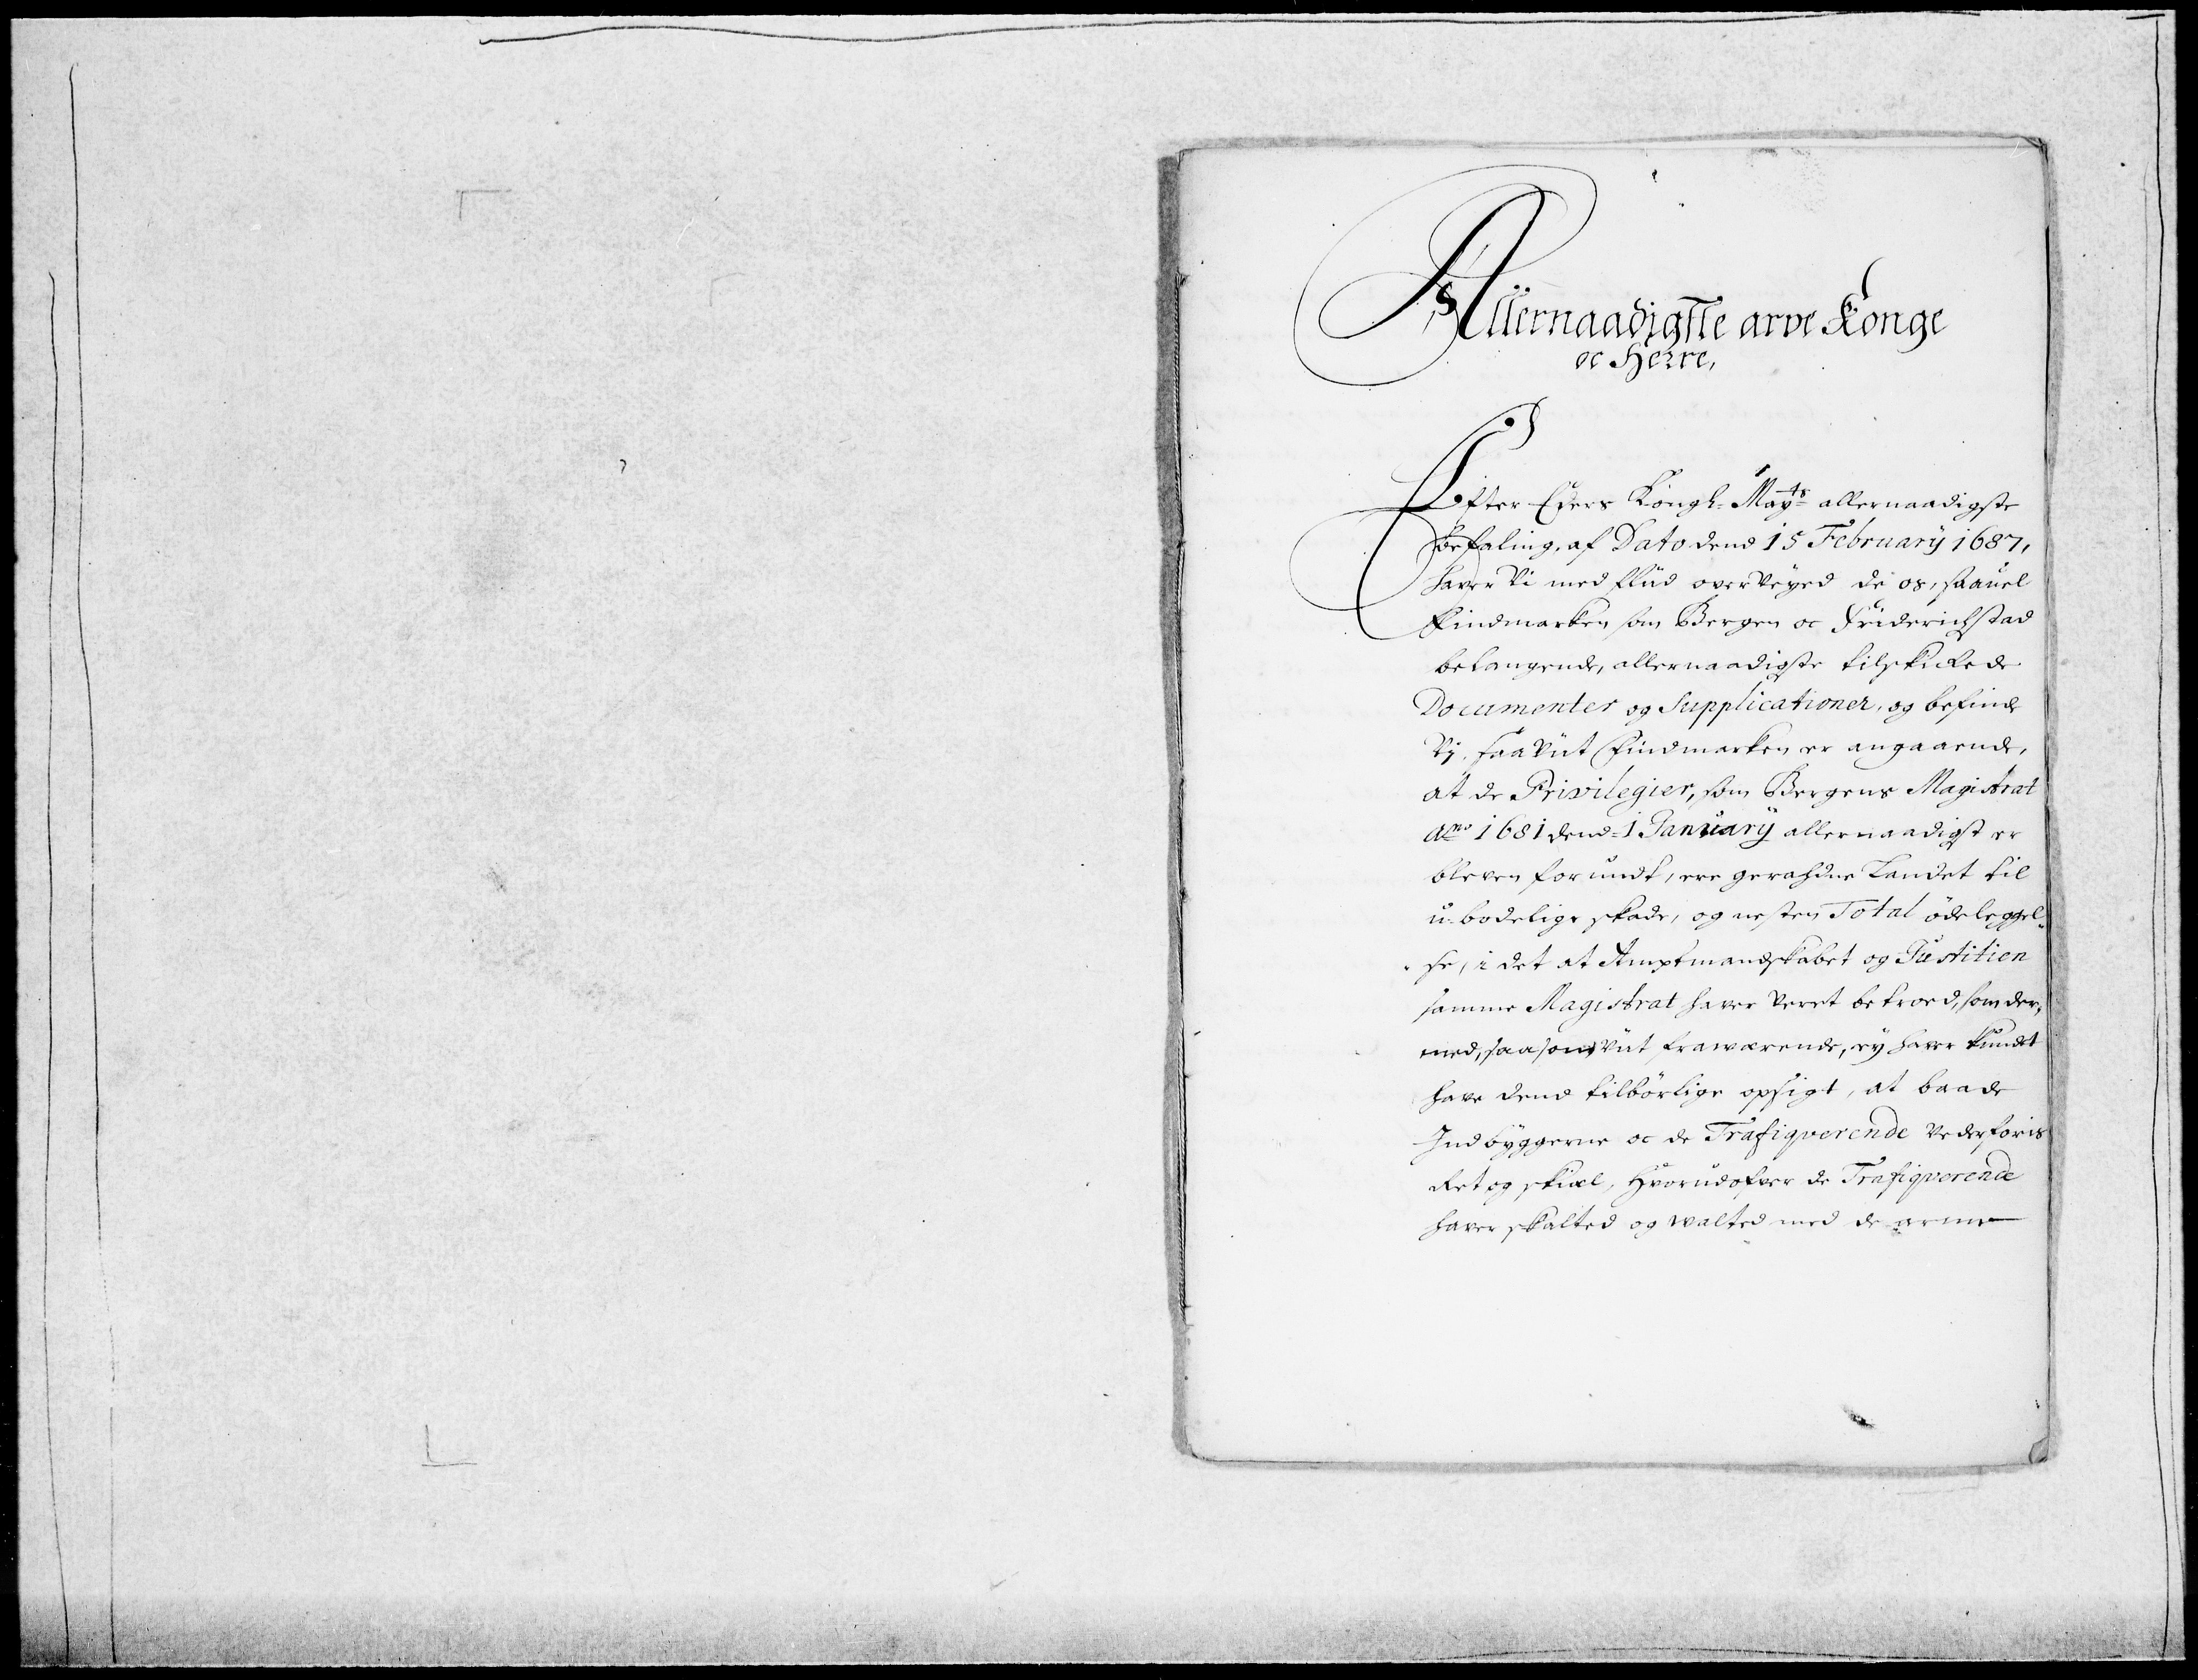 Allernaadigste arve Konge
oc Herre,
Efter Eders Kongl. Mayts allernaadigste
befaling, af Dato dend 15 February 1687,
haver Vi med fliid overveyed de os, saauel
Findmarken som Bergen oc Friderichstad
belangende, allernaadigste tilskickede
Documenter og Supplicationer, og befinde
Vj, saa vit Findmarken er angaaende,
at de Privilegier, som Bergens Magistrat
Ano 1681 dend 1 January allernaadigst er
bleven forundt, ere geraadne Landet til
u-bodelige skade, og nesten Total ödeleggel-
se, i det at Amptmandskabet og Justitien
samme Magistrat haver veret betroed, som der-
med, saasom vit fraværende, ey haver kundet
have dend tilbörlige opsigt, at baade
Indbyggerne oc de Trafiqverende vederforis
Ret og skiæl, Hvorudofver de Trafiqverende
haver skalted og walted med de arme